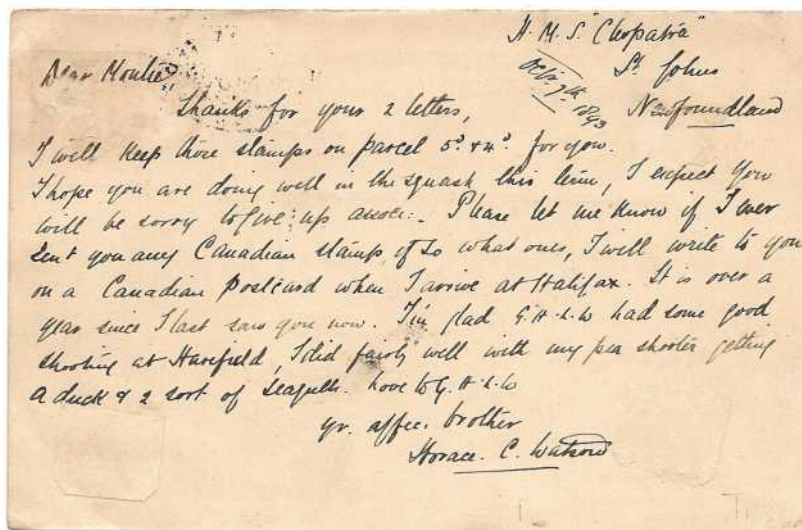 H. M. S. "Cleopatra"
St Johns
Octbr 7th 1893
Newfoundland
Dear
Thanks for your 2 letters,
I will keep those stamps on parcel 5d & 4d for you.
I hope you are doing well in the squash this term, I expect you
will be sorry to give up assoc:. Please let me know if I ever
sent you any Canadian stamps, if so what ones, I will write to you
on a Canadian postcard when I arrive at Halifax. It is over a
year since I last saw you now. I'm glad G.H.L.W had some good
shooting at Harefield, I did fairly well with my pea shooter getting
a duck & 2 sort of seagulls. Love to G.H.L.W
yr. affec. brother
Horace. C. Watson